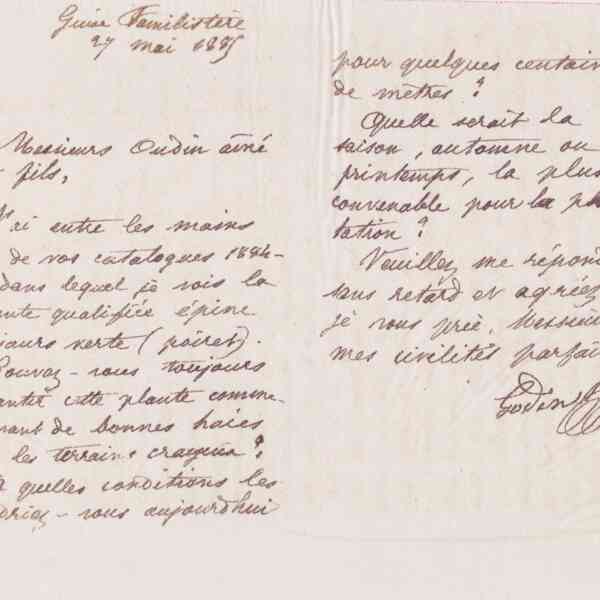 Guise Familistère
27 mai 1885
Messieurs Oudin ainé
fils,
J'ai entre les mains
de vos catalogues 1884-
dans lequel je vois la
ante qualifiée épine
jours verte (poiret).
Pouvez-vous toujours
antir cette plante comme
nant de bonnes haies
les terrains crayeux ?
à quelles conditions les
driez-vous aujourd'hui
pour quelques centain
de mètres ?
Quelle serait la
saison, automne ou
printemps, la plus
convenable pour la pla
tation ?
Veuillez me répond
sans retard et agréez
je vous prie, Messieu
mes civilités parfai
Godin